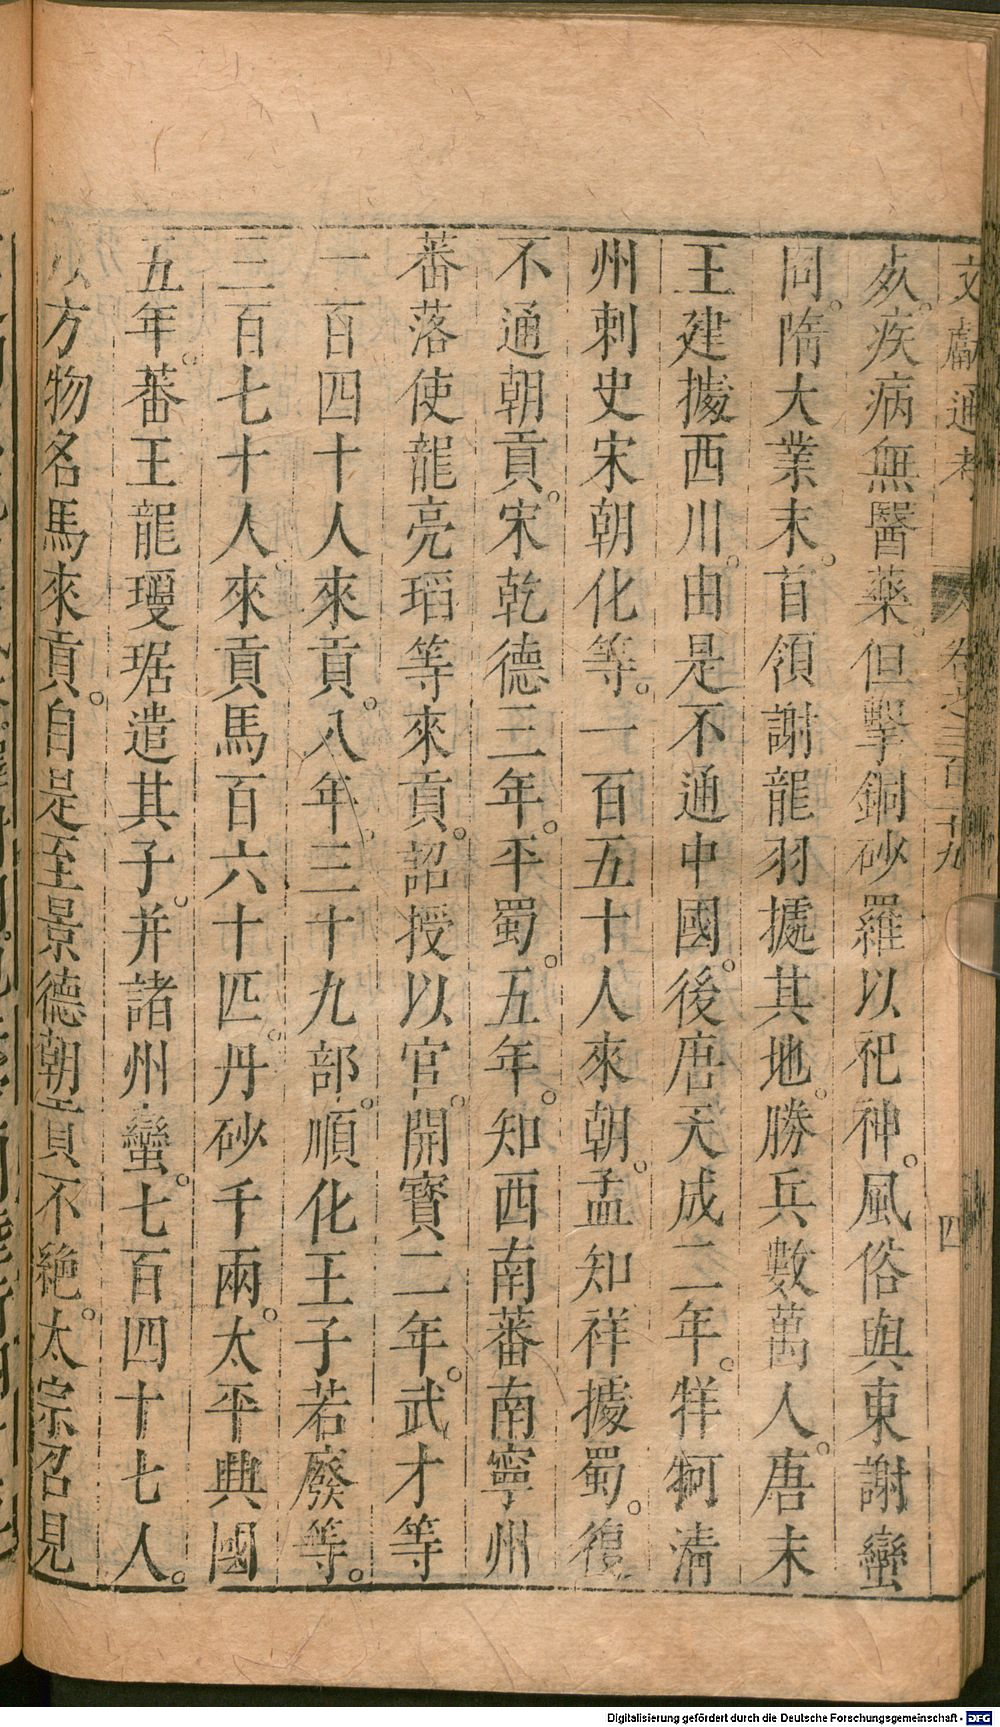 文獻通考 卷之三百二十九 四
夊疾病無醫藥但擊銅砂羅以祀神。風俗與東謝蠻
同。隋大業末。首領謝龍羽據其地。勝兵數萬人。唐末
王建據西川。由是不通中國。後唐天成二年。牂牁清
州刺史宋朝化等。一百五十人來朝。孟知祥據蜀。復
不通朝貢。宋乾德三年。平蜀。五年。知西南蕃南寧州
蕃落使龍亮瑫等來貢。詔授以官。開寶二年。武才等
一百四十人來貢。八年。三十九部。順化王子若廢等。
三百七十人。來貢馬百六十匹。丹砂千兩。太平興國
五年。蕃王龍瓊琚遣其子。并諸州蠻。七百四十七人。
以方物名馬來貢。自是至景德朝貢不絶。太宗召見
Digitalisierung gefördert durch die Deutsche Forschungsgemeinschaft - DFG